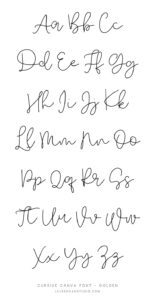 Aa Bb Cc
Dd Ee Ff Gg
Hh Ii Jj Kk
Ll Mm Nn Oo
Pp Qq Rr Ss
Tt Uu Vv Ww
Xx Yy Zz
CURSIVE CANVA FONT - HOLDEN